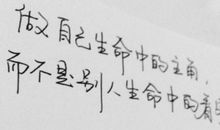 做自己生命中的主角，
而不是别人生命中的看